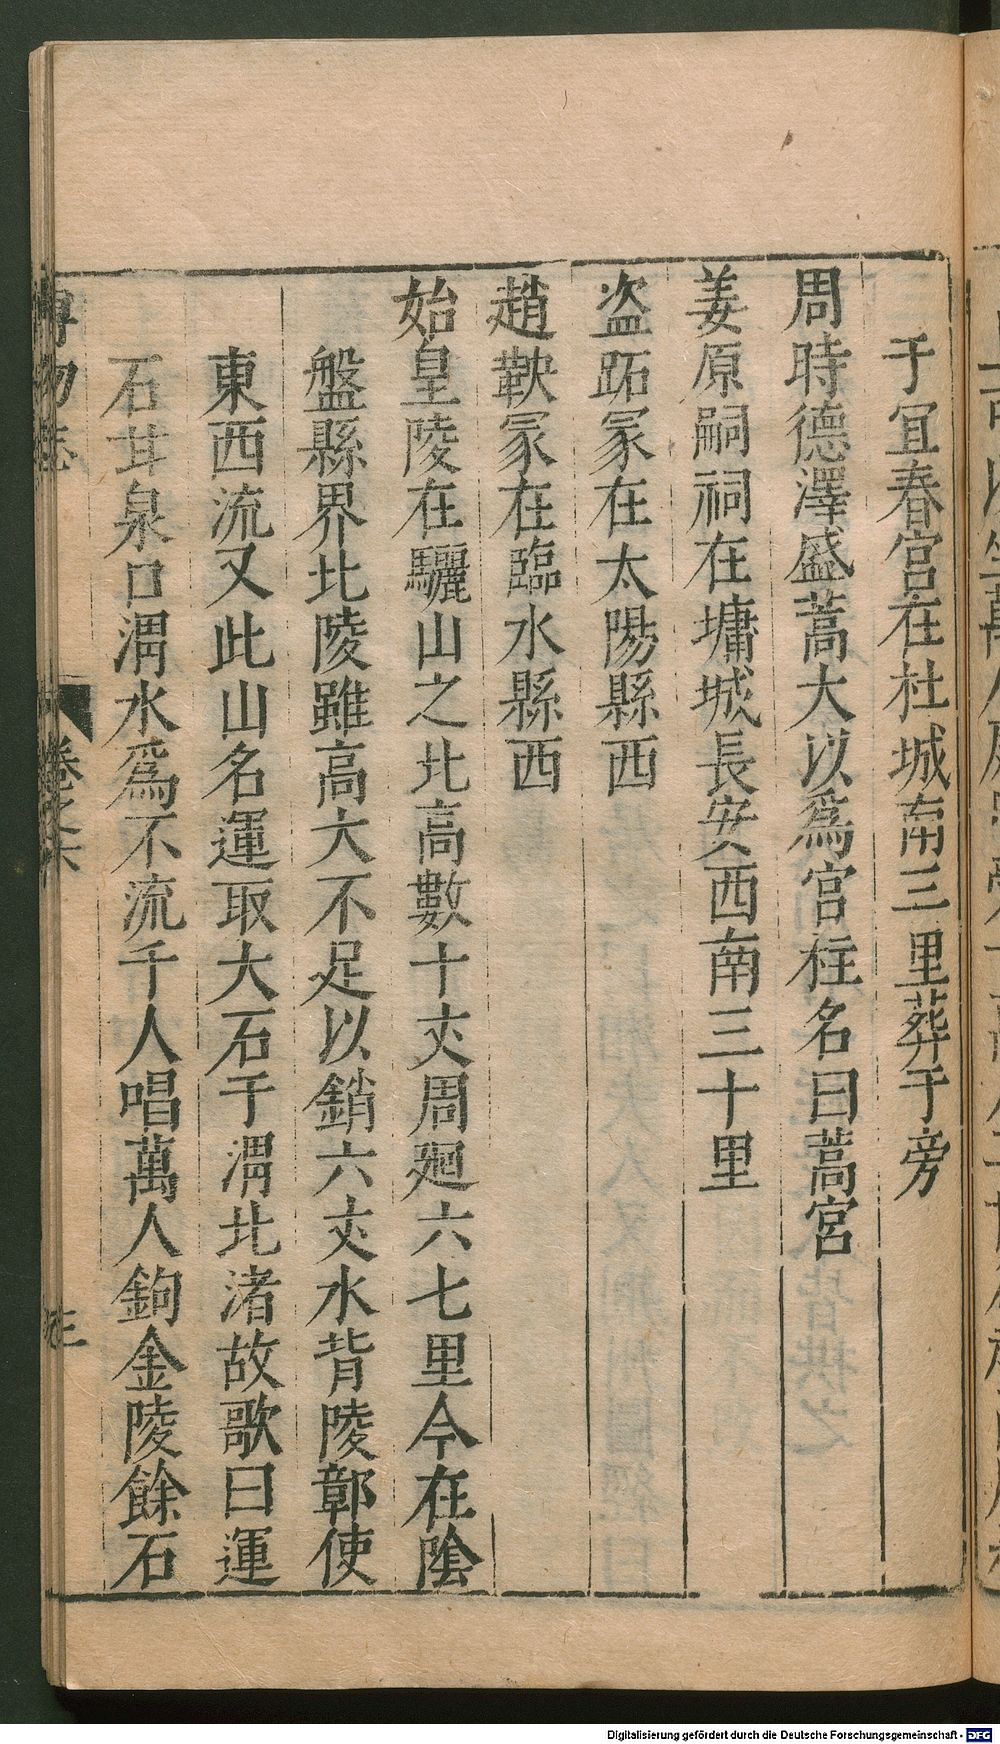 于冝春宫在杜城南三里葬于旁
周時德澤盛蒿大以爲宫柱名曰蒿宫
姜原嗣祠在墉城長安西南三十里
盗跖冢在太陽縣西
趙鞅冢在臨水縣西
始皇陵在驪山之北高數十丈周廻六七里今在陰
盤縣界北陵雖高大不足以銷六丈水背陵鄣使
東西流又此山名運取大石于渭北渚故歌曰運
石甘泉口渭水爲不流千人唱萬人鉤金陵餘石
博物志
卷之六
三
Digitalisierung gefördert durch die Deutsche Forschungsgemeinschaft - DFG